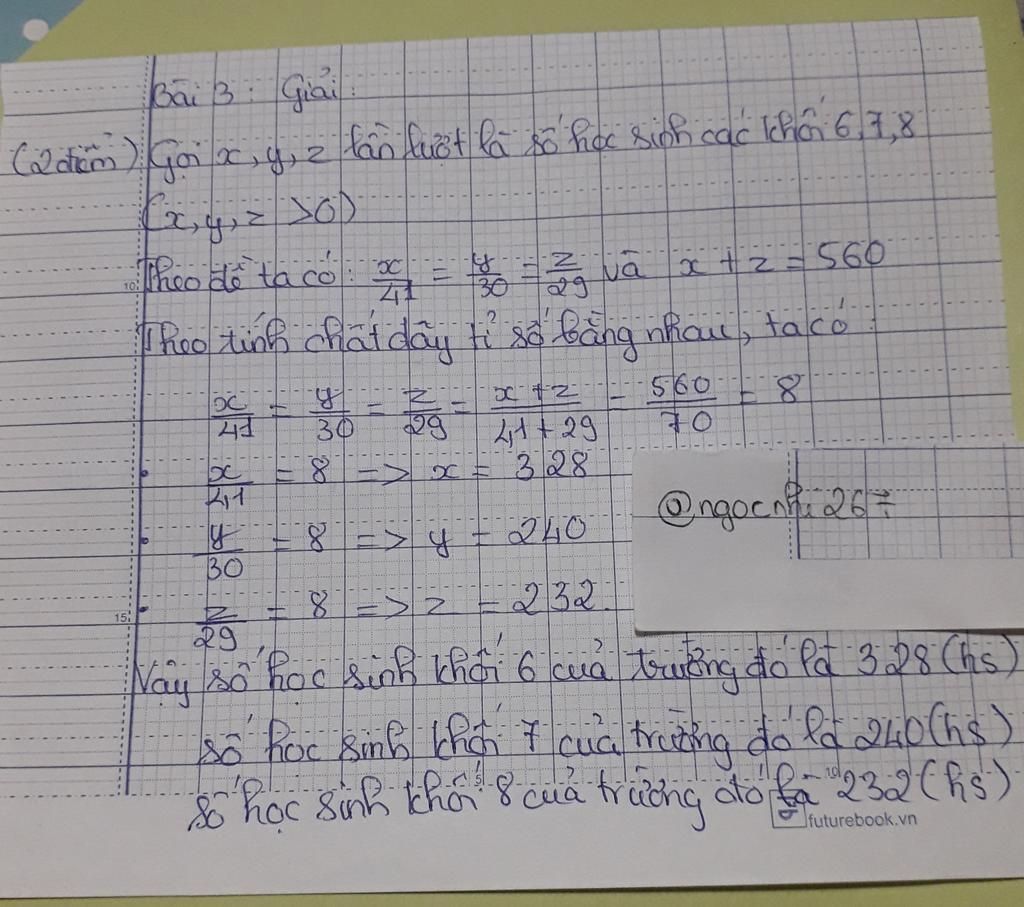 Bài 3: Giải:
(2 điểm) Gọi x, y, z lần lượt là số học sinh các khối 6, 7, 8
(x, y, z > 0)
10 Theo đề ta có: x/41 = y/30 = z/29 và x + z = 560
Theo tính chất dãy tỉ số bằng nhau, ta có:
x/41 = y/30 = z/29 = x + z/41 + 29 = 560/70 = 8
• x/41 = 8 => x = 328
@ngocnhi267
• y/30 = 8 => y = 240
15 • z/29 = 8 => z = 232
Vậy số học sinh khối 6 của trường đó là 328 (hs)
số học sinh khối 7 của trường đó là 240 (hs)
số học sinh khối 8 của trường đó là 232 (hs)
futurebook.vn